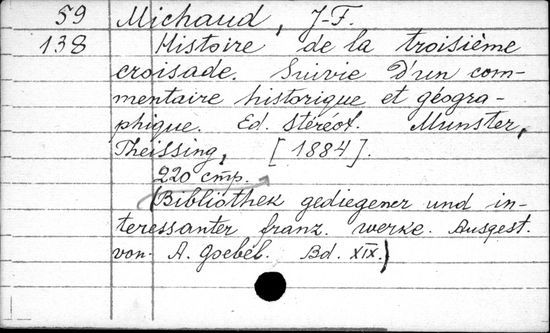 59 Michaud, J-F.
138 Histoire de la troisième
croisade. Suivie d'un com-
mentaire historique et géogra-
phique. Ed. stéréot. Munster,
Theissing, [1884].
220 стр.
(Bibliothek gediegener und in-
teressanter franz. werke. Ausgest.
von. A. Goebel. Bd. XIX.)